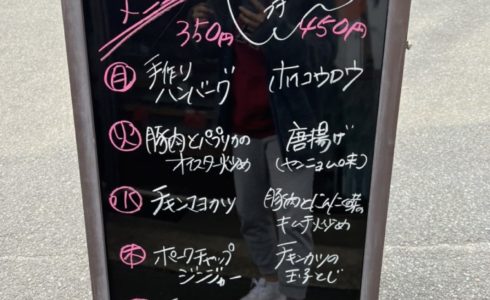 メニュー
350円 450円
月 手作り
ハンバーグ
ホイコウロウ
火 豚肉とパプリカの
オイスター炒め
唐揚げ
(ヤンニョム味)
水 チキンヨカツ
豚肉とにんにく芽の
キムチ炒め
木 ポークチャップ
ジンジャー
チキンカツの
玉子とじ